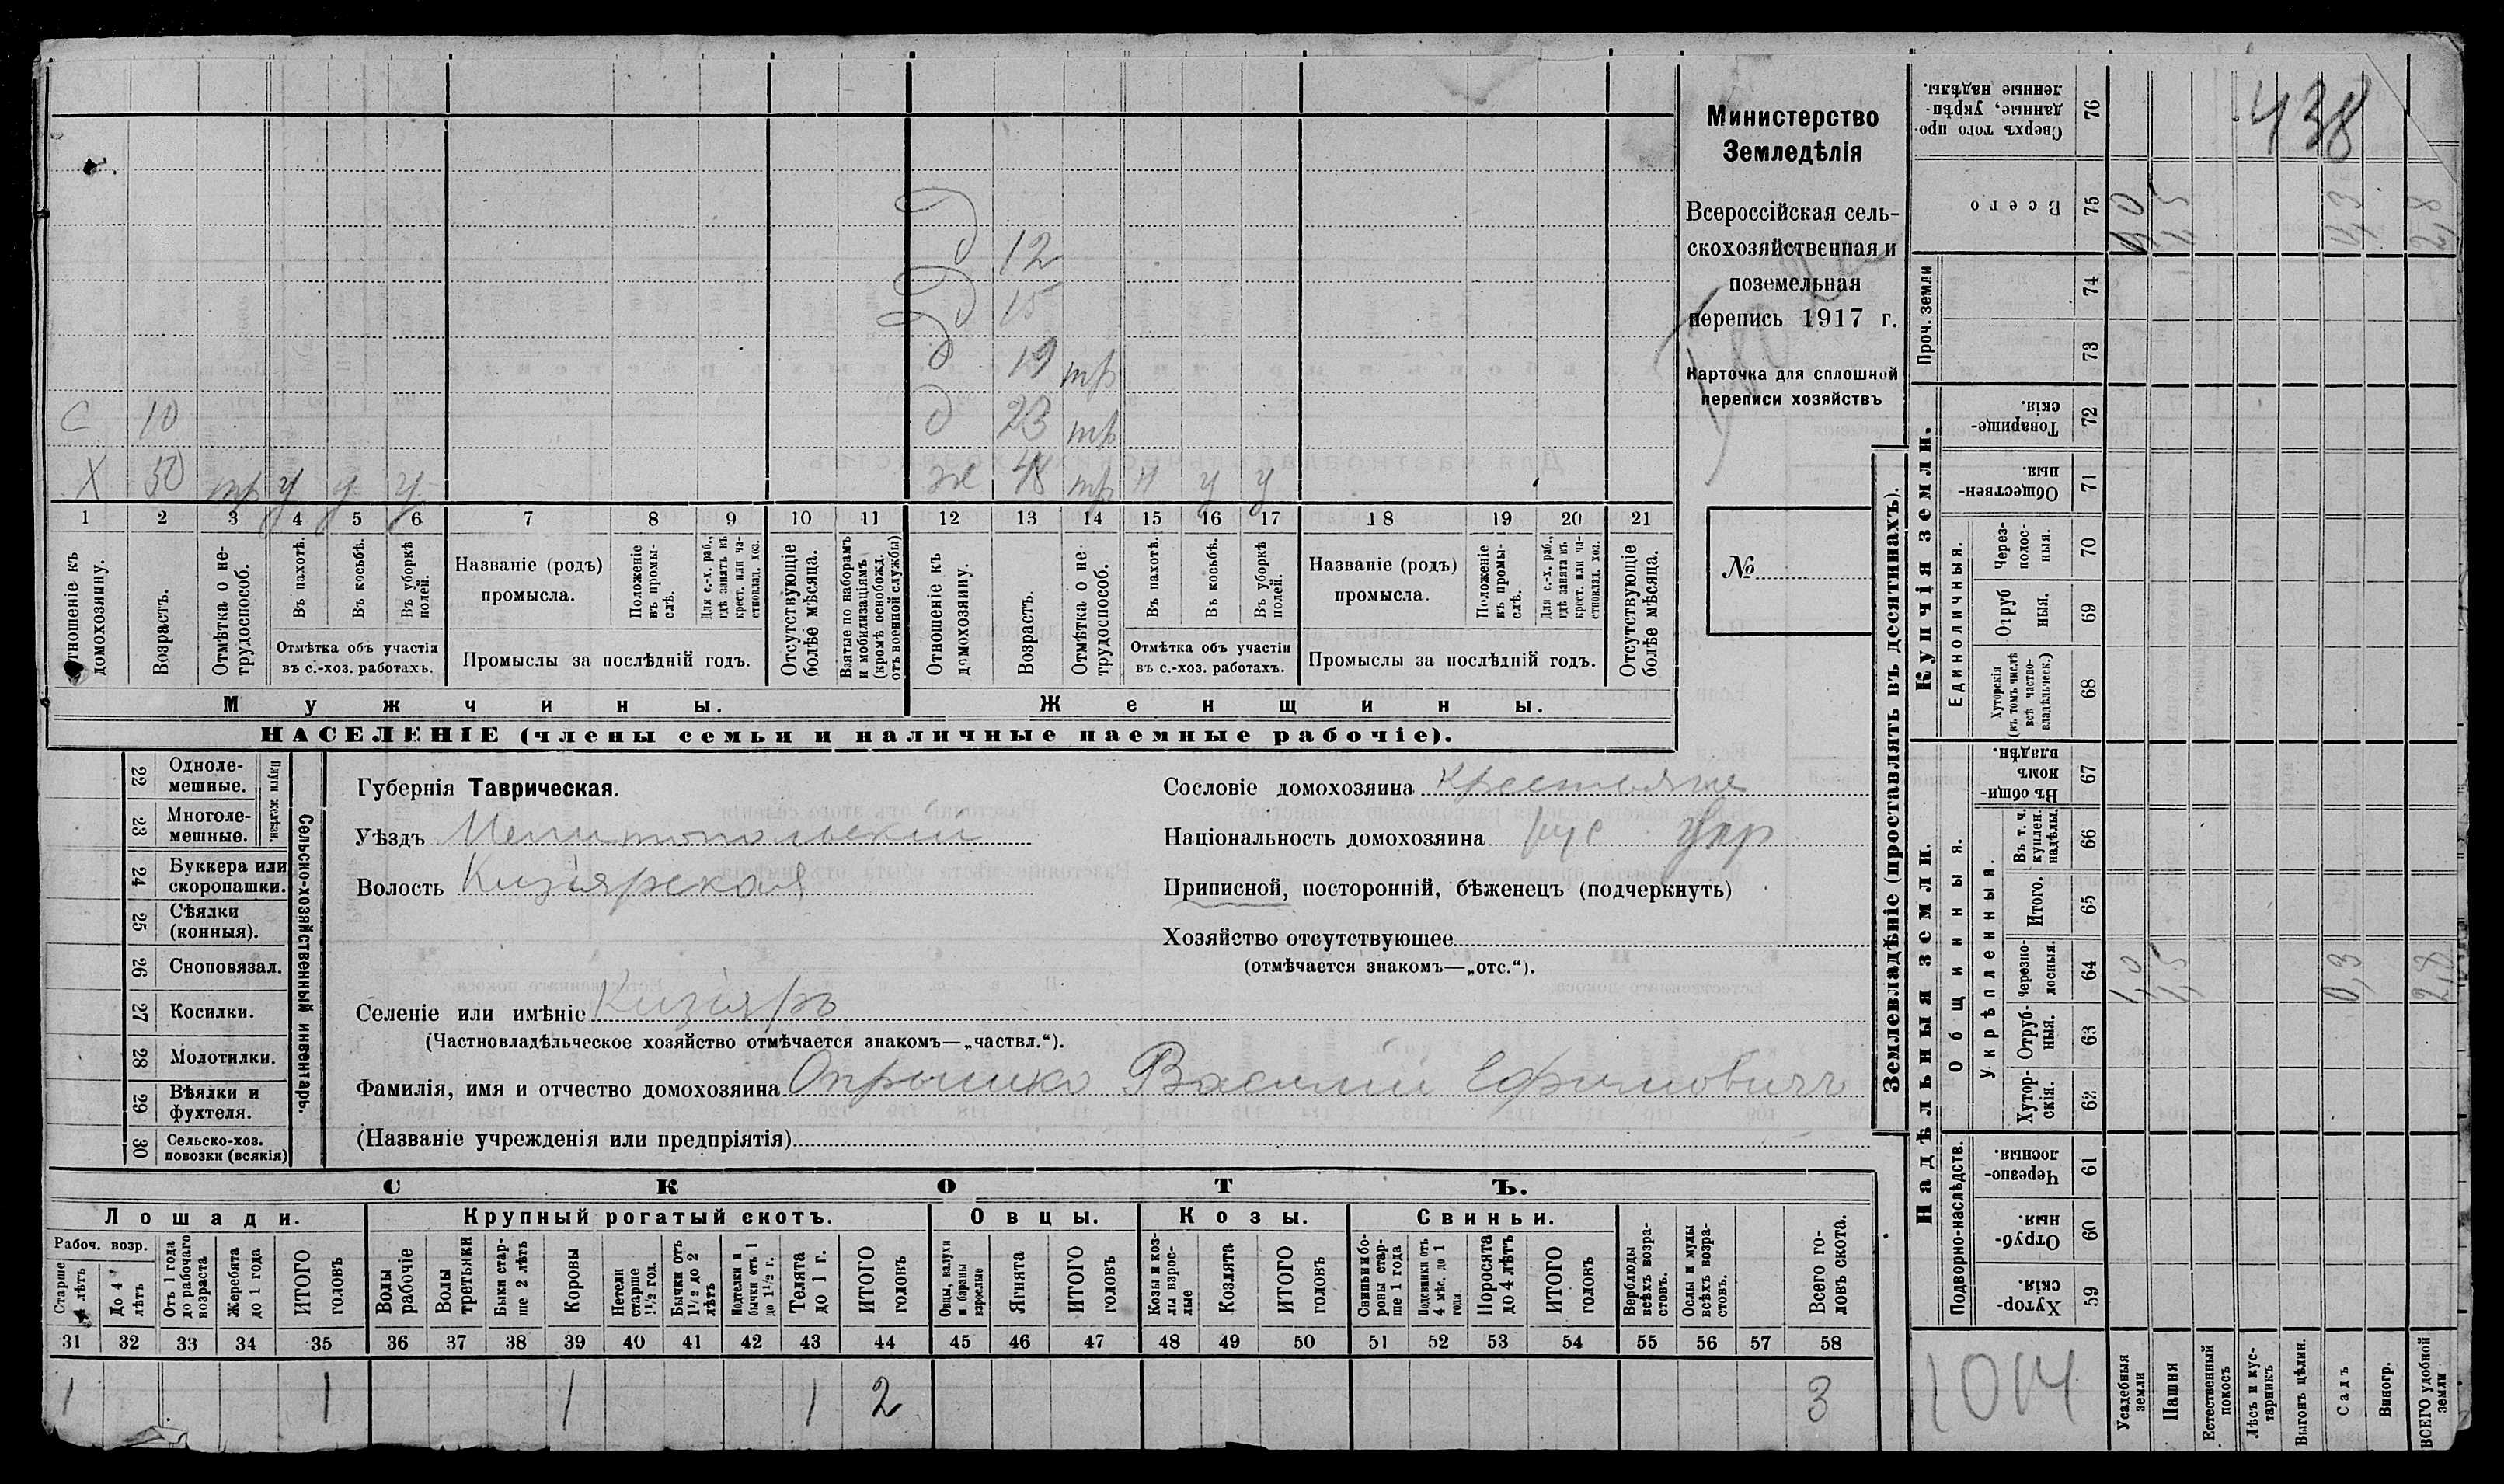 Министерство
Земледѣлія
Всероссійская сель-
скохозяйственная и
поземельная
перепись 1917 г.
Карточка для сплошной
переписи хозяйствъ
№
д 12
д 15
д 19 тр
С 10 д 23 тр
Х 50 тр у у у ж 48 тр н у у
1 2 3 4 5 6 7 8 9 10 11 12 13 14 15 16 17 18 19 20 21
Отношеніе къ домохозяину.
Возрастъ.
Отмѣтка о не-трудоспособ.
Въ пахотѣ.
Въ косьбѣ.
Въ уборкѣ полей.
Отмѣтка объ участіи
въ с.-хоз. работахъ.
Названіе (родъ)
промысла.
Положеніе въ промы-слѣ.
Для с.-х. раб., гдѣ занятъ въ крест. или ча-стновлад. хоз.
Промыслы за послѣдній годъ.
Отсутствующіе болѣе мѣсяца.
Взятые по наборамъ и мобилизаціямъ (кромѣ освобожд. отъ военной службы)
Отношеніе къ домохозяину.
Возрастъ.
Отмѣтка о не-трудоспособ.
Въ пахотѣ.
Въ косьбѣ.
Въ уборкѣ полей.
Отмѣтка объ участіи
въ с.-хоз. работахъ.
Названіе (родъ)
промысла.
Положеніе въ промы-слѣ.
Для с.-х. раб., гдѣ занята въ крест. или ча-стновлад. хоз.
Промыслы за послѣдній годъ.
Отсутствующіе болѣе мѣсяца.
Мужчины. Женщины.
НАСЕЛЕНІЕ (члены семьи и наличные наемные рабочіе).
Сельско-хозяйственный инвентарь.
Плуги желѣзн.
22 Однолемешные.
23 Многолемешные.
24 Буккера или скоропашки.
25 Сѣялки (конныя).
26 Сноповязал.
27 Косилки.
28 Молотилки.
29 Вѣялки и фухтеля.
30 Сельско-хоз. повозки (всякія)
Губернія Таврическая.
Уѣздъ Мелитопольскій
Волость Кизіярская
Сословіе домохозяина крестьяне
Національность домохозяина рус Укр
Приписной, посторонній, бѣженецъ (подчеркнуть)
Хозяйство отсутствующее
(отмѣчается знакомъ—„отс.“).
Селеніе или имѣніе Кизіяръ
(Частновладѣльческое хозяйство отмѣчается знакомъ—„частвл.“).
Фамилія, имя и отчество домохозяина Опрышко Василій Ефимовичъ
(Названіе учрежденія или предпріятія)
СКОТЪ.
Лошади. Крупный рогатый скотъ. Овцы. Козы. Свиньи.
Рабоч. возр.
Старше 4 лѣтъ
До 4 лѣтъ
Отъ 1 года до рабочаго возраста
Жеребята до 1 года
ИТОГО головъ
Волы рабочіе
Волы третьяки
Быки стар-ше 2 лѣтъ
Коровы
Нетели старше 1½ год.
Бычки отъ 1½ до 2 лѣтъ
Подтелки и бычки отъ 1 до 1½ г.
Телята до 1 г.
ИТОГО головъ
Овцы, валухи и бараны взрослые
Ягнята
ИТОГО головъ
Козы и коз-лы взрос-лые
Козлята
ИТОГО головъ
Свиньи и бо-ровы стар-ше 1 года
Подсвинки отъ 4 мѣс. до 1 года
Поросята до 4 лѣтъ
ИТОГО головъ
Верблюды всѣхъ возра-стовъ.
Ослы и мулы всѣхъ возра-стовъ.
Всего го-ловъ скота.
31 32 33 34 35 36 37 38 39 40 41 42 43 44 45 46 47 48 49 50 51 52 53 54 55 56 57 58
1 1 1 1 2 3
Землевладѣніе (проставлять въ десятинахъ).
438
76 Сверхъ того про-данные, укрѣп-ленные надѣлы.
75 Всего 1,0 1,5 0,3 2,8
Проч. земли
74
73
Купчія земли.
72 Товарище-скія.
71 Обществен-ныя.
Единоличныя.
70 Через-полос-ныя.
69 Отруб-ныя.
68 Хуторскія (въ томъ числѣ всѣ частно-владѣльческ.)
Надѣльныя земли.
Общинныя.
67 Въ общи-номъ владѣн.
Укрѣпленныя.
66 Въ т. ч. куплен. надѣлы.
65 Итого.
64 Черезпо-лосныя. 1,0 1,5 0,3 2,8
63 Отруб-ныя.
62 Хутор-скія.
Подворно-наслѣдств.
61 Черезпо-лосныя.
60 Отруб-ныя.
59 Хутор-скія.
1014
Усадебныя земли
Пашня
Естественный покосъ
Лѣсъ и кус-тарникъ
Выгонъ цѣлин.
Садъ
Виногр.
ВСЕГО удобной земли